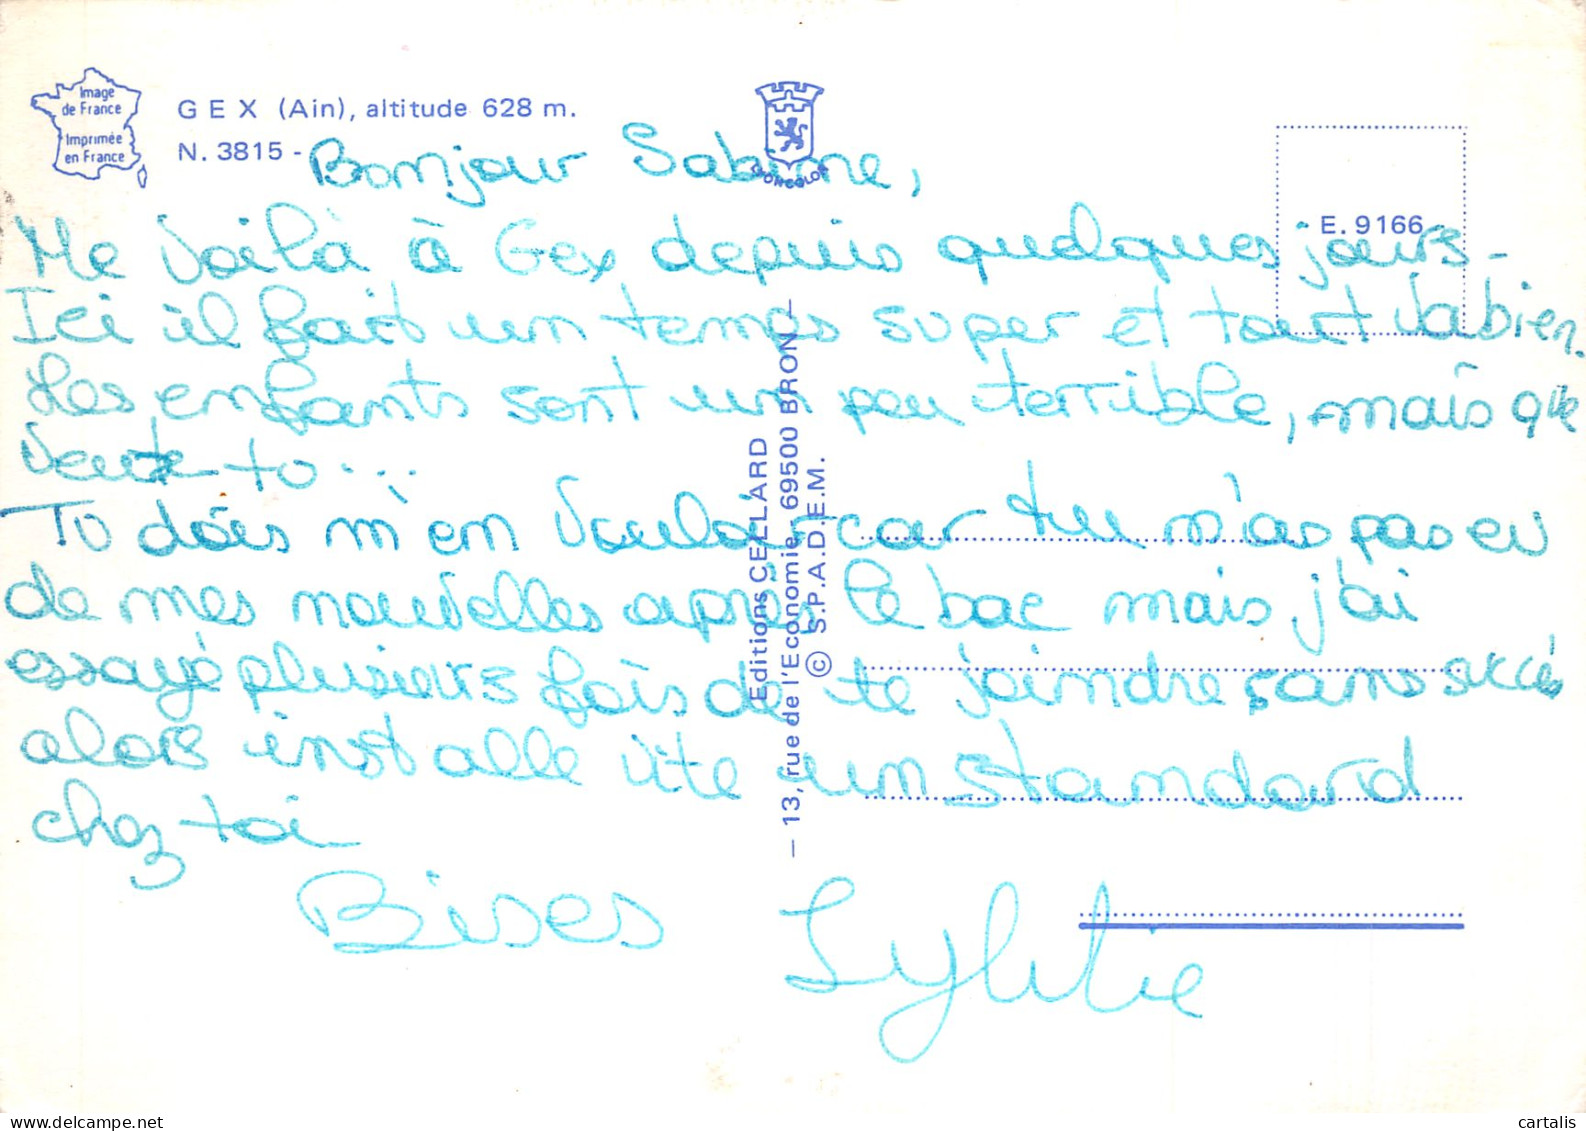 Image
de France
Imprimée
en France
GEX (Ain), altitude 628 m.
N. 3815 -
CIONCOLOR
E. 9166
Bonjour Sabine,
Me voilà à Gex depuis quelques jours -
Ici il fait un temps super et tout va bien.
Les enfants sont un peu terrible, mais que
veux-tu...
Tu dois m'en vouloir car tu n'as pas eu
de mes nouvelles après le bac mais j'ai
essayé plusieurs fois de te joindre sans succès
alors installe vite un standard
chez toi
Bises
Editions CELLARD
— 13, rue de l'Economie, 69500 BRON —
© S.P.A.D.E.M.
delcampe.net
cartalis